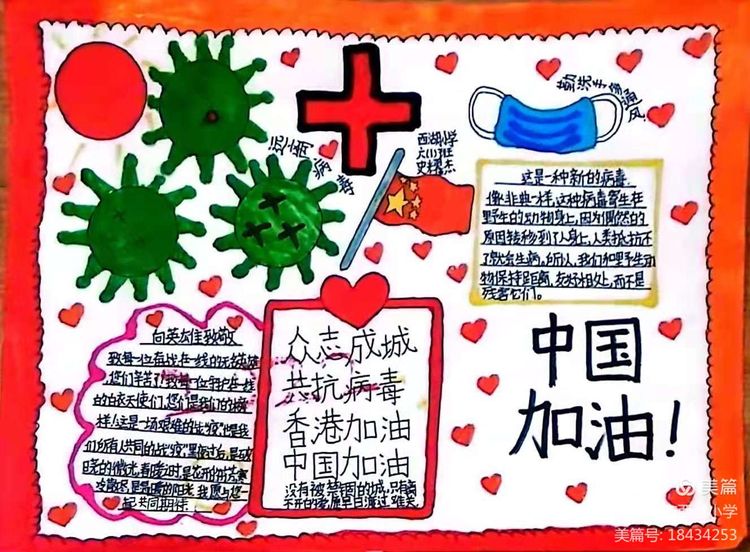 勤洗手多通风
西湖小学
六(1)班
病毒
这是一种新的病毒.
像非典一样,这种病毒寄生在
野生的动物身上,因为偶然的
原因转移到了人身上,人类抵抗不
了就会生病。所以,我们和野生动
物保持距离,友好相处,而不是
残害它们。
众志成城
共抗病毒
香港加油
中国加油
没有被禁锢的城,只有离
不开的爱,愿早日渡过难关
中国
加油!
向英雄致敬
致每一位奋战在一线的
您们辛苦了!致每一位
的白衣天使们,您们是我们的榜
样人生是一场艰难的战"疫"也是我
们所有人共同的战"疫"黑夜过后,是
日光的微光,春暖
美篇
小学
美篇号: 18434253